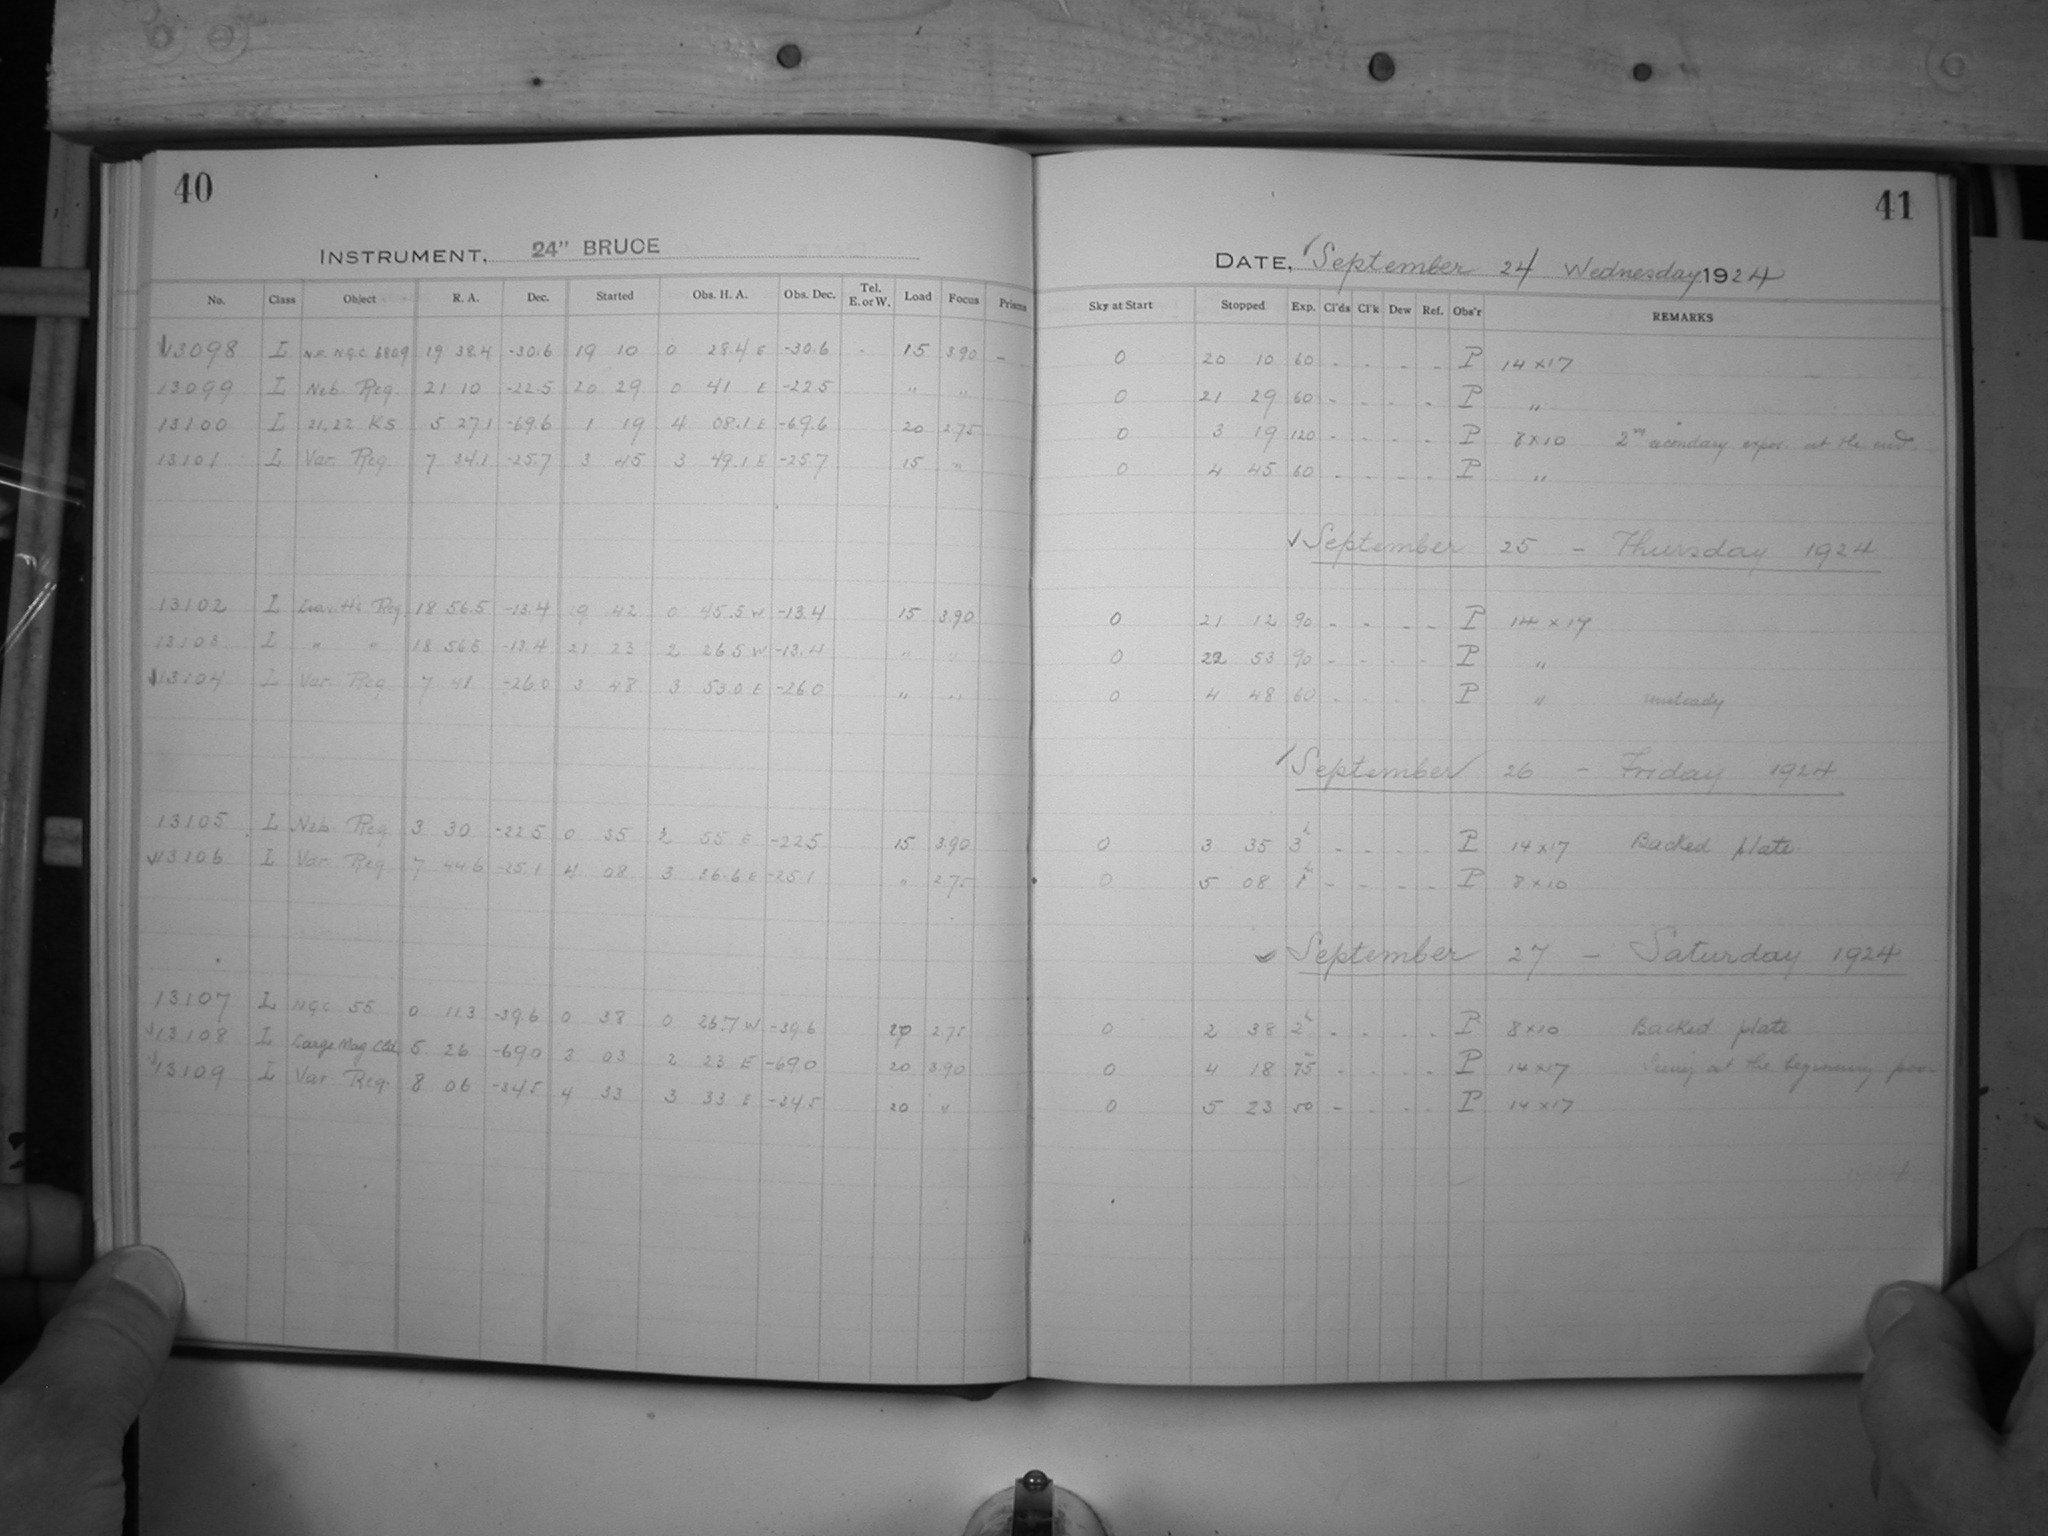 40
INSTRUMENT, 24" BRUCE
No. Class Object R. A. Dec. Started Obs. H. A. Obs. Dec. Tel. E. or W. Load Focus Prisms
13098 L N.F. N.G.C. 6809 19 38.4 -30.6 19 10 0 28.4 E -30.6 - 15 3.90 -
13099 L Neb. Reg. 21 10 -22.5 20 29 0 41 E -22.5 " "
13100 L 21,22 K5 5 27.1 -69.6 1 19 4 08.1 E -69.6 20 2.75
13101 L Var. Reg 7 34.1 -25.7 3 45 3 49.1 E -25.7 15 "
13102 L Reg. 18 56.5 -13.4 19 42 0 45.5 W -13.4 15 3.90
13103 L " " 18 56.5 -13.4 21 23 2 26.5 W -13.4 " "
13104 L Var. Reg 7 41 -26.0 3 48 3 53.0 E -26.0 " "
13105 L Neb. Reg 3 30 -22.5 0 35 2 55 E -22.5 15 3.90
13106 L Var. Reg 7 44.6 -25.1 4 08 3 36.6 E -25.1 " 2.75
13107 L N.G.C. 55 0 11.3 -39.6 0 38 0 26.7 W -39.6 20 2.75
13108 L Large Mag. Cld. 5 26 -69.0 3 03 2 23 E -69.0 20 3.90
13109 L Var. Reg. 8 06 -34.5 4 33 3 33 E -34.5 20 "
41
DATE, September 24 Wednesday 1924
Sky at Start Stopped Exp. Cl'ds Cl'k Dew Ref. Obs'r REMARKS
0 20 10 60 - - - - P 14 x 17
0 21 29 60 - - - - P "
0 3 19 120 - - - - P 8 x 10 2nd secondary expos. at the end.
0 4 45 60 - - - - P "
September 25 - Thursday 1924
0 21 12 90 - - - - P 14 x 17
0 22 53 90 - - - - P "
0 4 48 60 - - - - P " unsteady
September 26 - Friday 1924
0 3 35 3h - - - - P 14 x 17 Backed plate.
0 5 08 1h - - - - P 8 x 10
September 27 - Saturday 1924
0 2 38 2h - - - - P 8 x 10 Backed plate
0 4 18 75 - - - - P 14 x 17 Seeing at the beginning poor.
0 5 23 50 - - - - P 14 x 17